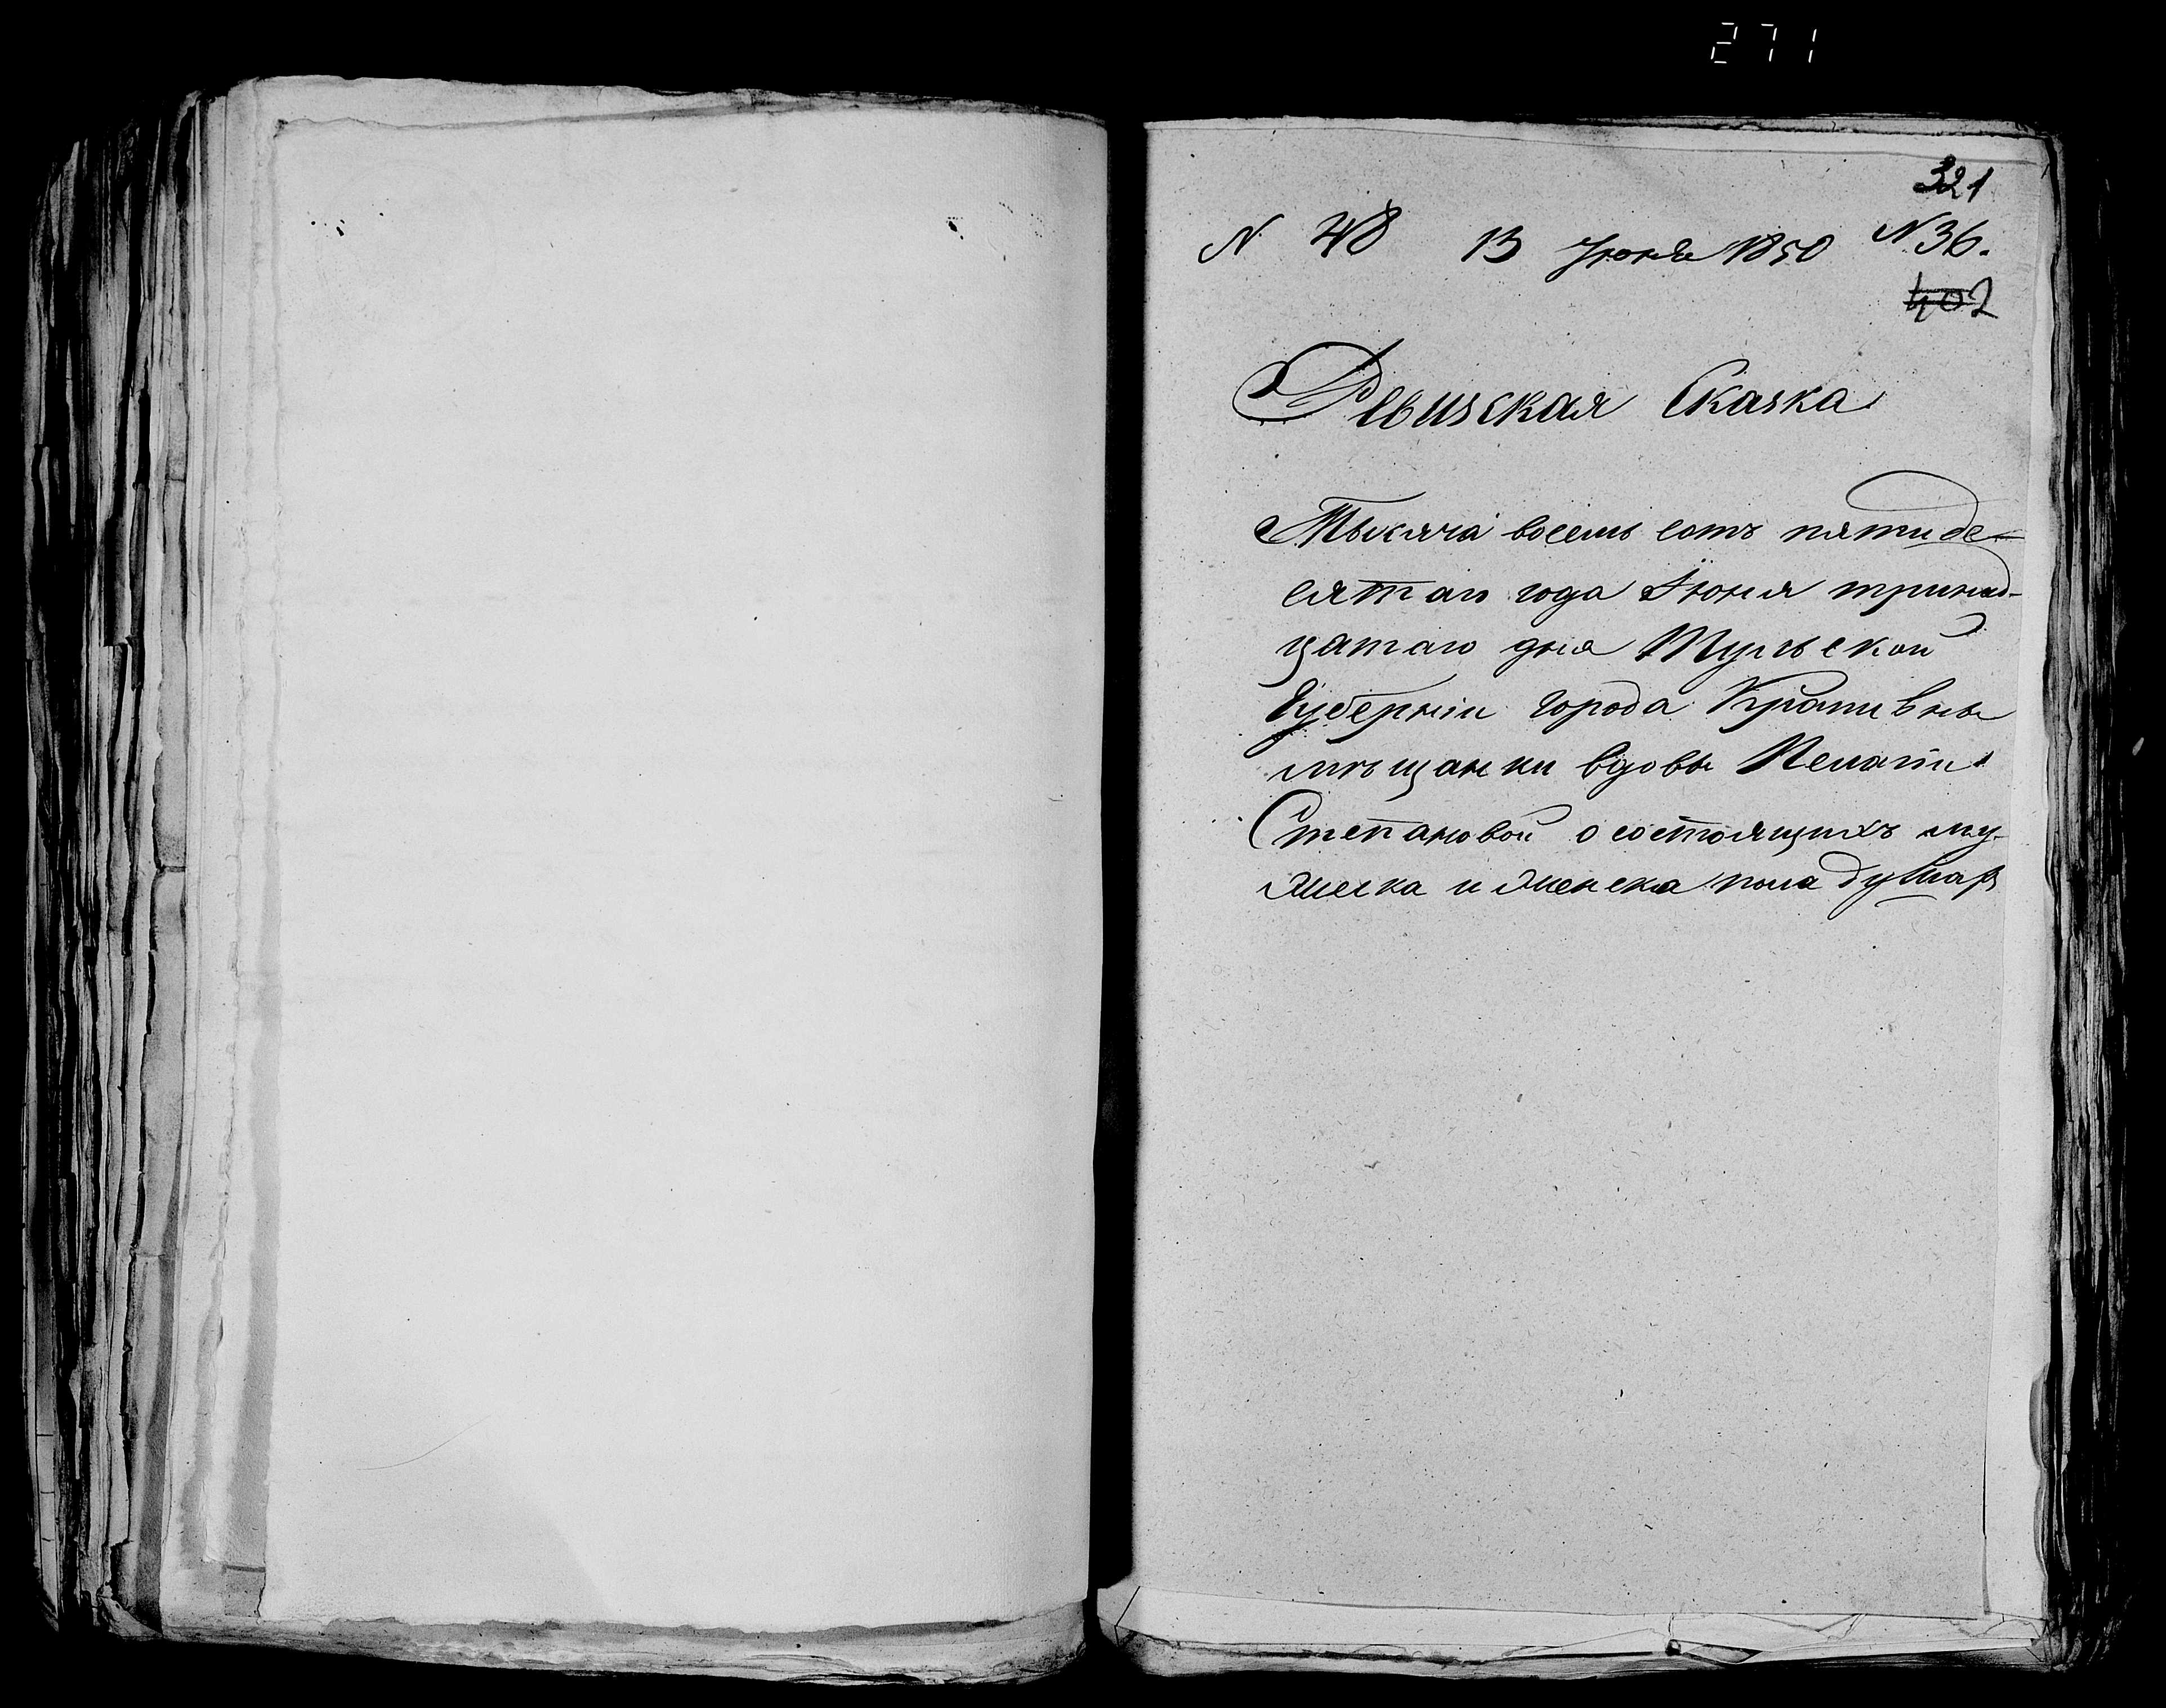 271
321
N 48 13 Июня 1850 N 36.
402
Ревизская Сказка
Тысяча восемь сотъ пятиде-
сятаго года Іюня тринад-
цатаго дня Тульской
Губерніи города Крапивны
мѣщанки вдовы Пелагіи
Степановой о состоящихъ му-
жеска и женска пола душахъ